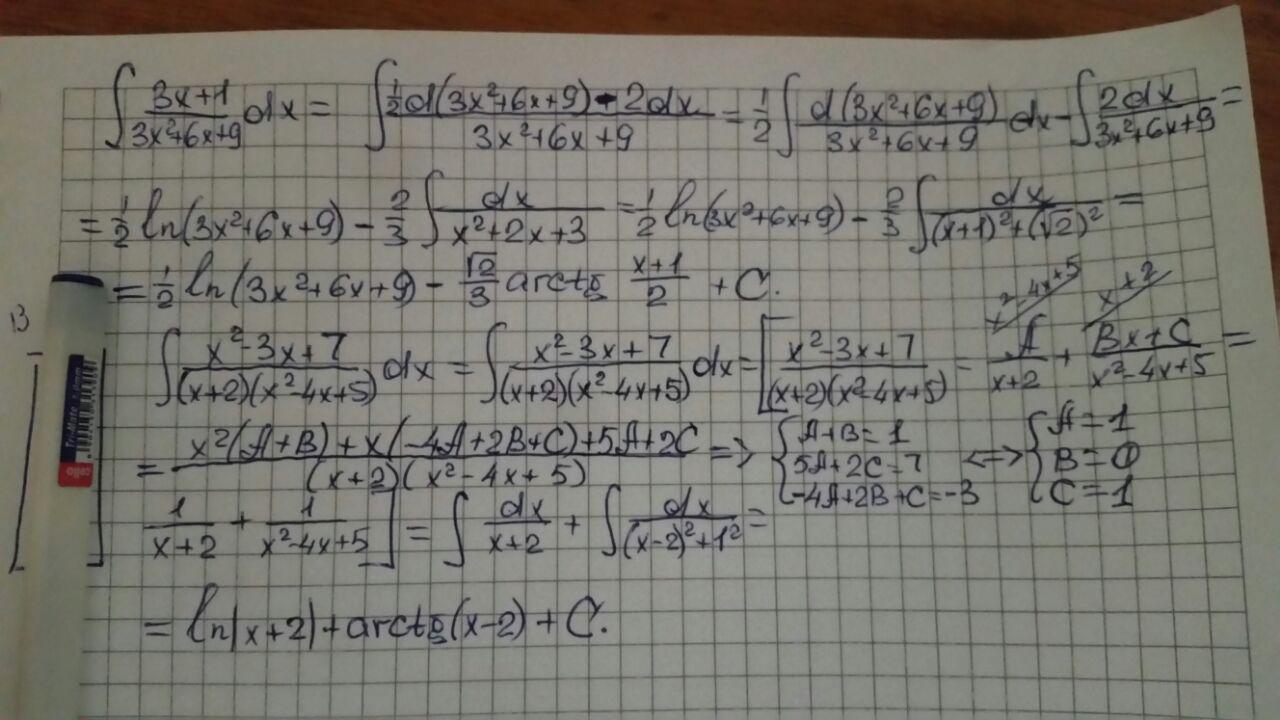 ∫ (3x+1)/(3x²+6x+9) dx = ∫ (½d(3x²+6x+9) - 2dx)/(3x²+6x+9) = ½ ∫ d(3x²+6x+9)/(3x²+6x+9) dx - ∫ 2dx/(3x²+6x+9) =
= ½ ln(3x²+6x+9) - ⅔ ∫ dx/(x²+2x+3) = ½ ln(3x²+6x+9) - ⅔ ∫ dx/((x+1)²+(√2)²) =
= ½ ln(3x²+6x+9) - √2/3 arctg (x+1)/2 + C.
13
∫ (x²-3x+7)/((x+2)(x²-4x+5)) dx = ∫ (x²-3x+7)/((x+2)(x²-4x+5)) dx = [ (x²-3x+7)/((x+2)(x²-4x+5)) = A/(x+2) (x²-4x+5) + (Bx+C)/(x²-4x+5) (x+2) =
= (x²(A+B) + x(-4A+2B+C) + 5A+2C)/((x+2)(x²-4x+5)) => { A+B=1 5A+2C=7 -4A+2B+C=-3 <=> { A=1 B=0 C=1
1/(x+2) + 1/(x²-4x+5) ] = ∫ dx/(x+2) + ∫ dx/((x-2)²+1²) =
= ln|x+2| + arctg(x-2) + C.
TriMate
cello